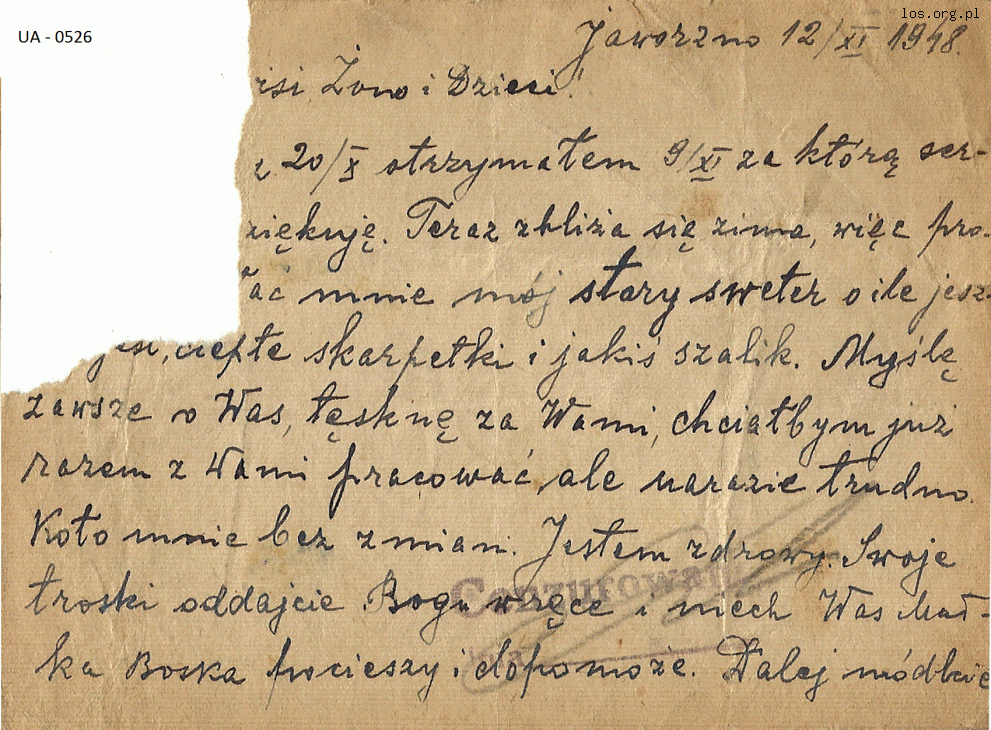 los.org.pl
UA - 0526
Jaworzno 12/XI 1948.
Żono i Dzieci!
z 20/X otrzymałem 9/XI za którą ser-
ziękuję. Teraz zbliża się zima, więc pro-
łać mnie mój stary sweter o ile jesz-
jest, ciepłe skarpetki i jakiś szalik. Myślę
zawsze o Was, tęsknę za Wami, chciałbym już
razem z Wami pracować, ale narazie trudno.
Koło mnie bez zmian. Jestem zdrowy. Swoje
Cenzurowa
troski oddajcie Bogu w ręce i niech Was Mat-
ka Boska pocieszy i dopomoże. Dalej módlcie